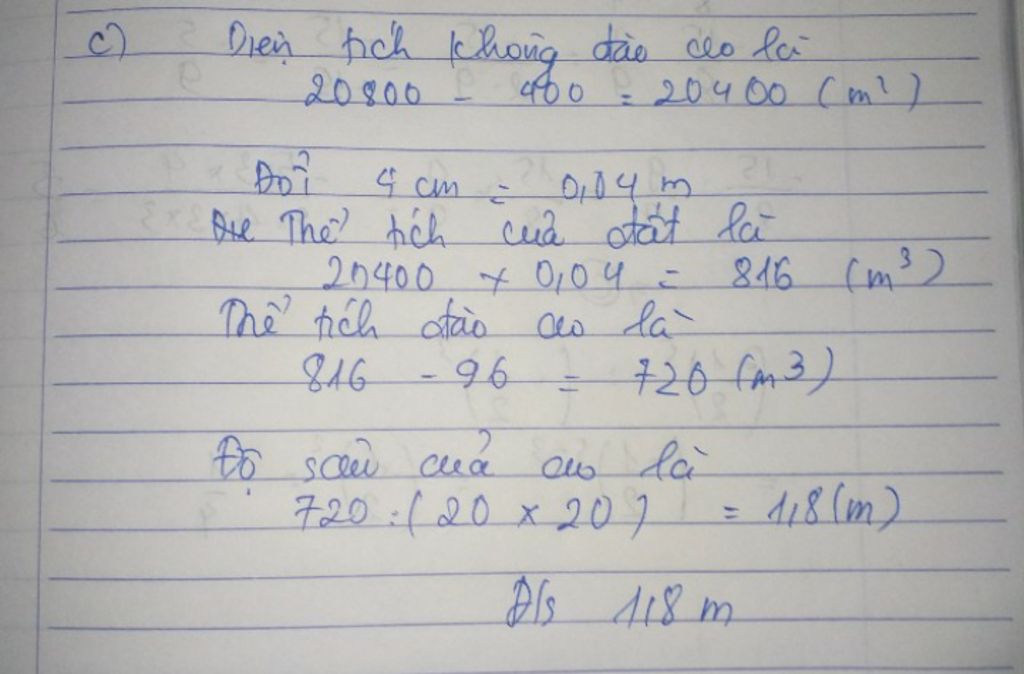 c) Diện tích không đào ao là
20800 - 400 = 20400 (m²)
Đổi 4 cm = 0,04 m
Thể tích của đất là
20400 x 0,04 = 816 (m³)
Thể tích đào ao là
816 - 96 = 720 (m3)
Độ sâu của ao là
720 : ( 20 x 20 ) = 1,8 (m)
Đ/s 1,8 m